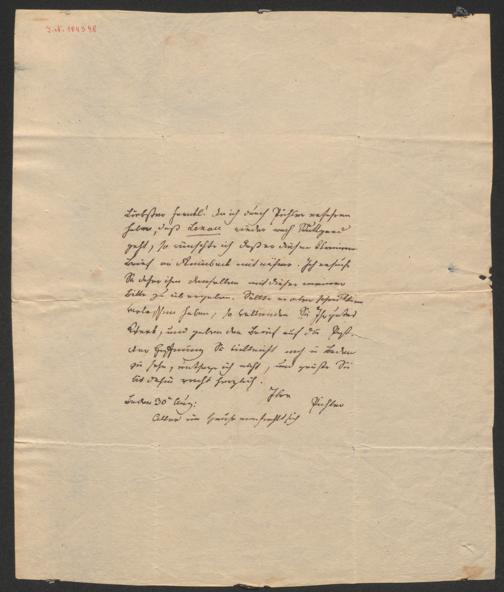 J. N. 184598
Liebster Freund! Da ich durch Pichler erfahren
habe, daß Lenau wieder nach Stuttgard
geht, so wünschte ich daß er diesen kleinen
Brief an mitnähme. Ich ersuche
Sie daher ihm denselben mit dieser meiner
Bitte zu übergeben. Sollte er aber schon Wien
verlassen haben, so vollenden Sie Ihr gutes
Werk, und geben den Brief auf die Post.
Der Hoffnung Sie vielleicht noch in Baden
zu sehn, entsage ich nicht, und grüße Sie
bis dahin recht herzlich.
Ihre
Baden 30n Aug: Pichler
Alles im Hause empfiehlt sich